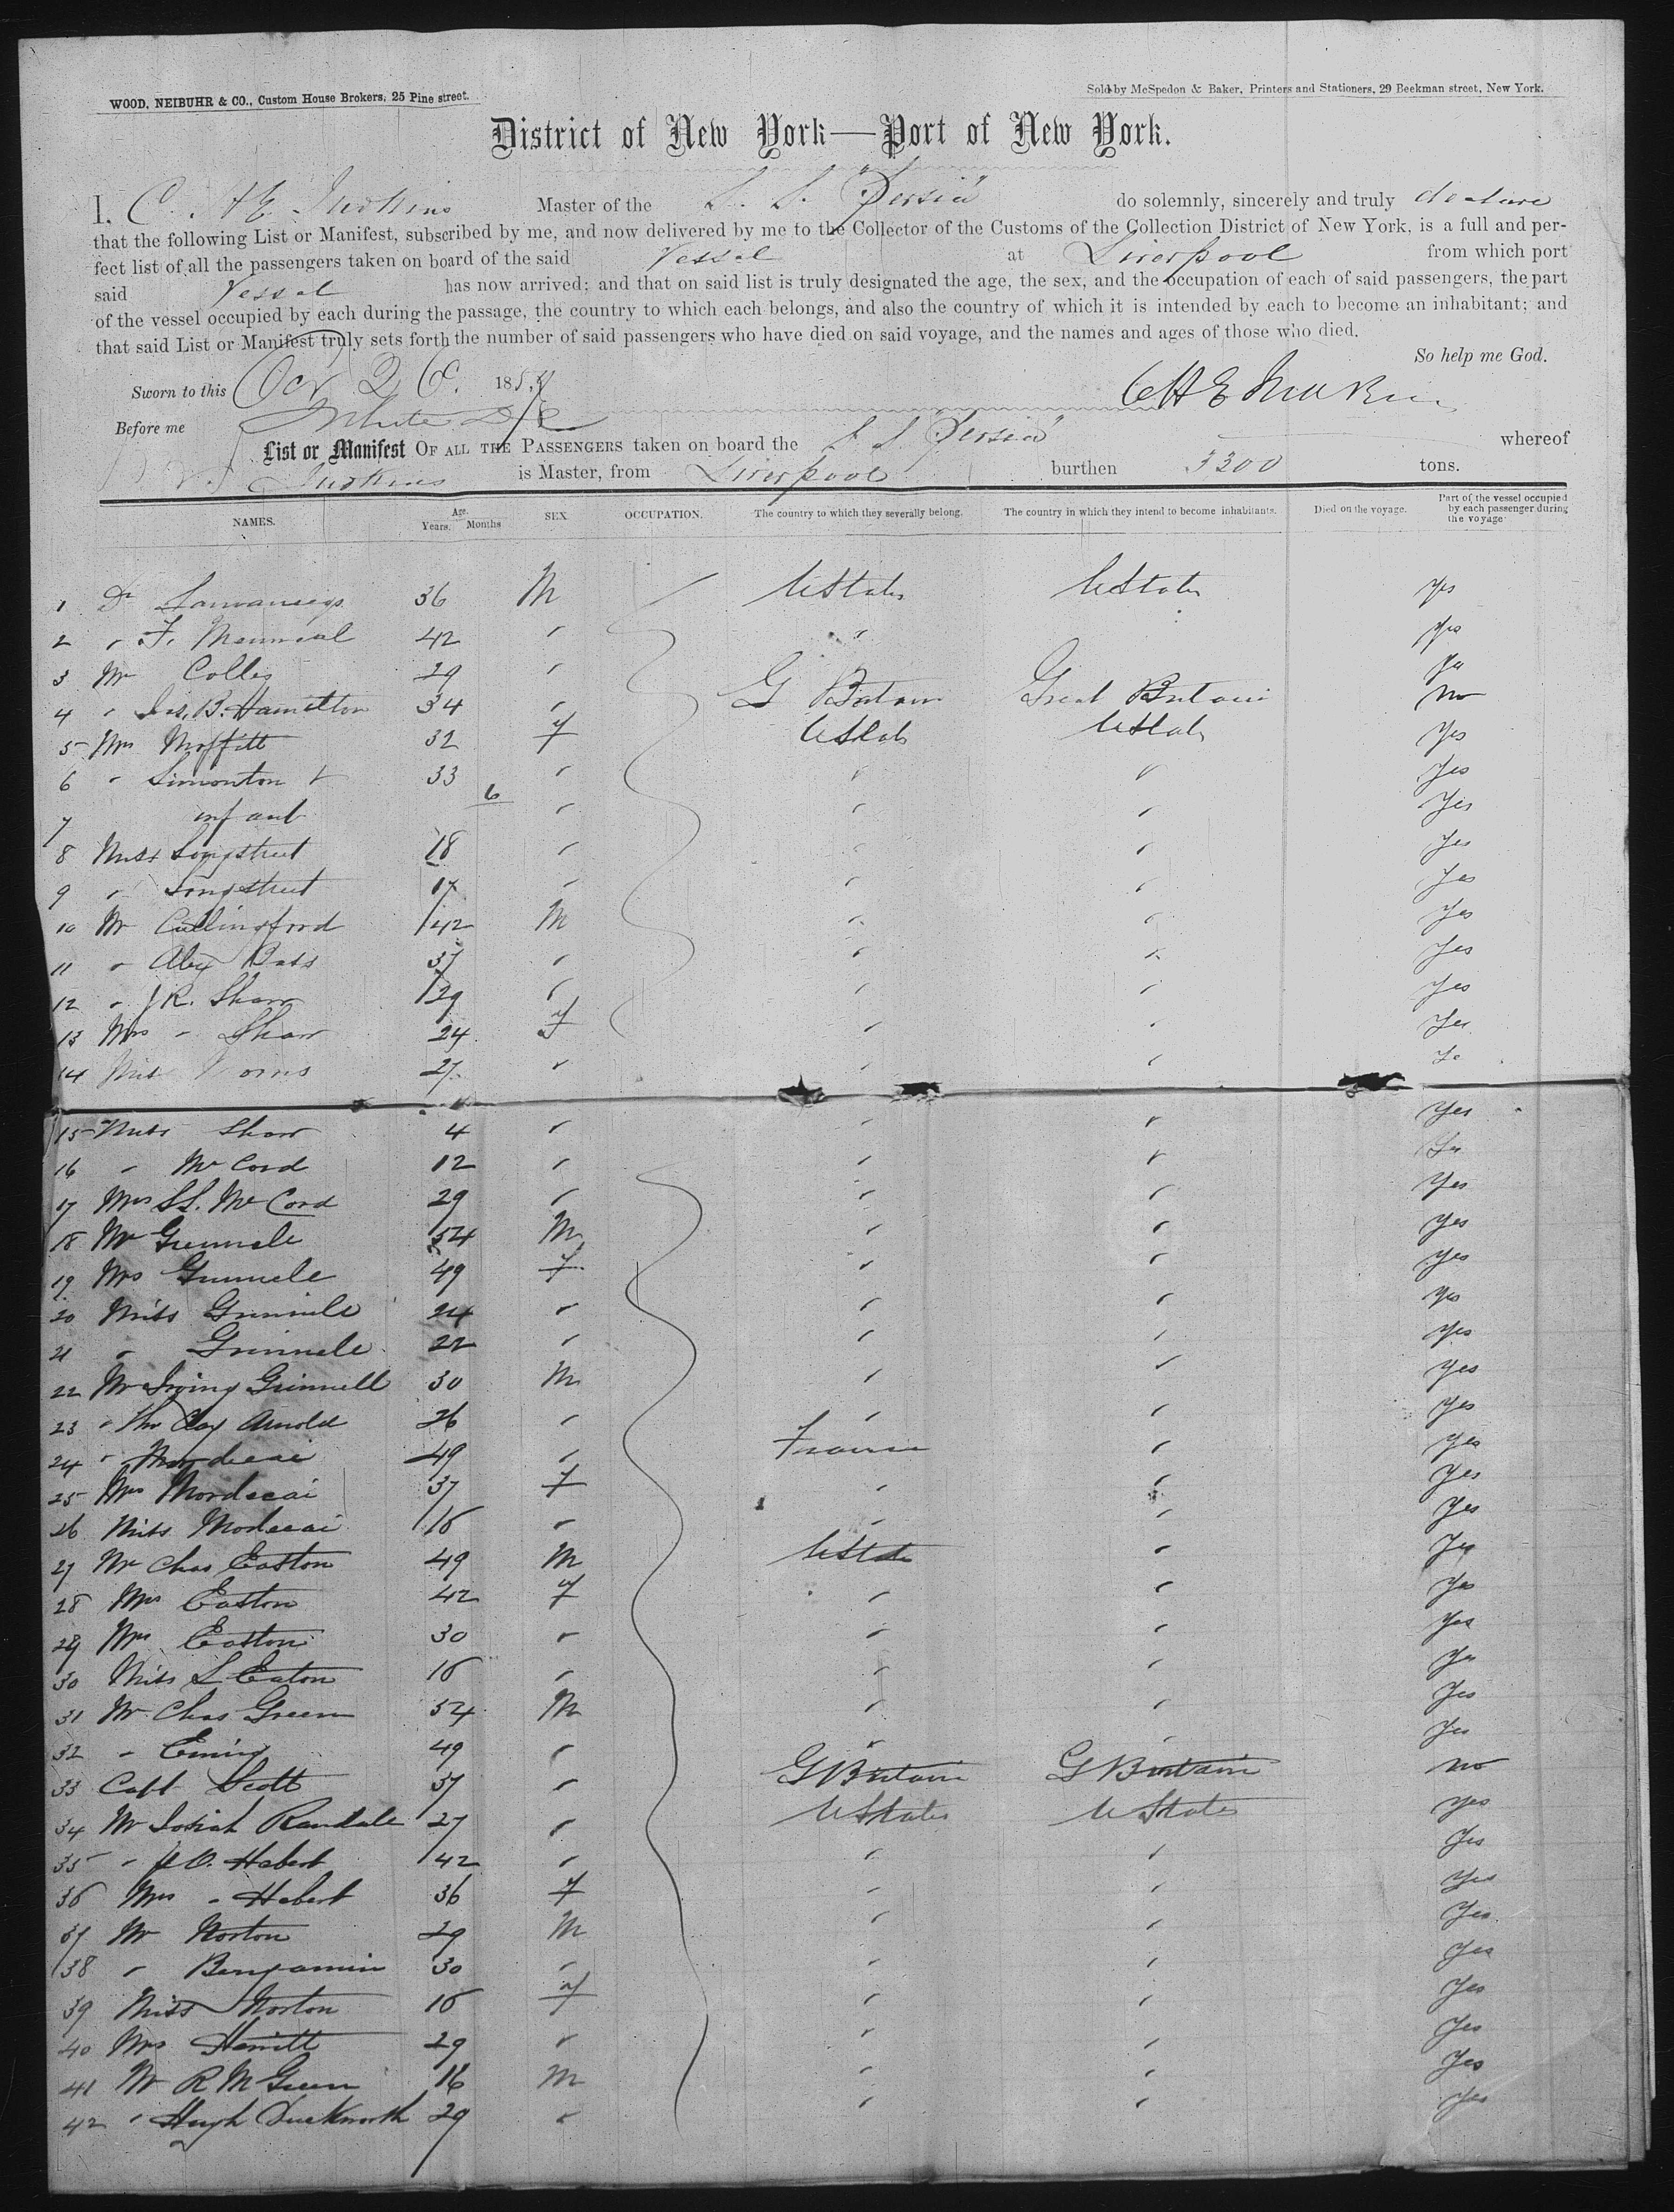 WOOD, NEIBUHR & CO., Custom House Brokers, 25 Pine street.
Sold by McSpedon & Baker, Printers and Stationers, 29 Beekman street, New York.
District of New York—Port of New York.
I, C. H E Judkins Master of the S. S. "Persia" do solemnly, sincerely and truly declare
that the following List or Manifest, subscribed by me, and now delivered by me to the Collector of the Customs of the Collection District of New York, is a full and per-
fect list of all the passengers taken on board of the said Vessel at Liverpool from which port
said Vessel has now arrived; and that on said list is truly designated the age, the sex, and the occupation of each of said passengers, the part
of the vessel occupied by each during the passage, the country to which each belongs, and also the country of which it is intended by each to become an inhabitant; and
that said List or Manifest truly sets forth the number of said passengers who have died on said voyage, and the names and ages of those who died.
So help me God.
Sworn to this Oct 26. 185
C H E Judkins
Before me
List or Manifest OF ALL THE PASSENGERS taken on board the S. S. Persia whereof
Judkins is Master, from Liverpool burthen 3300 tons.
NAMES. Age. Years. Months SEX. OCCUPATION. The country to which they severally belong. The country in which they intend to become inhabitants. Died on the voyage. Part of the vessel occupied by each passenger during the voyage
1 Dr 36 M UStates UStates Yes
2 " F. 42 " " Yes
3 Mr Colles 29 " Yes
4 " Jas. B. Hamilton 34 " G Britain Great Britain No
5 Mrs Moffitt 32 F UStates UStates Yes
6 " Simonton & 33 " " " Yes
7 infant 6 " " " Yes
8 Miss Longstreet 18 " " " Yes
9 " Longstreet 17 " " " Yes
10 Mr Cullingford 42 M " " Yes
11 " Alex 37 " " " Yes
12 " J R. Shaw 29 " " " Yes
13 Mrs " Shaw 24 F " " Yes
14 Miss 27 " " "
15 Miss Shaw 4 " " " Yes
16 " McCord 12 " " " Yes
17 Mrs S S. McCord 29 " " " Yes
18 Mr Grinnele 54 M " " Yes
19 Mrs Grinnele 49 F " " Yes
20 Miss Grinnele 24 " " " Yes
21 " Grinnele 22 " " " Yes
22 Mr Irving Grinnell 30 M " " Yes
23 " Thos Clay Arnold 26 " " " Yes
24 " Mordecai 49 " France " Yes
25 Mrs Mordecai 37 F " " Yes
26 Miss Mordecai 16 " " " Yes
27 Mr Chas Easton 49 M UStates " Yes
28 Mrs Easton 42 F " " Yes
29 Mrs Easton 30 " " " Yes
30 Miss L Eaton 16 " " " Yes
31 Mr Chas Green 54 M " " Yes
32 " 49 " " " Yes
33 Capt Scott 37 " G Britain G Britain no
34 Mr Josiah Randale 27 " UStates UStates Yes
35 " P O. Hebert 42 " " " Yes
36 Mrs " Hebert 36 F " " Yes
37 Mr Norton 29 M " " Yes
38 " Benjamin 30 " " " Yes
39 Miss Norton 16 F " " Yes
40 Mrs Hewitt 29 " " " Yes
41 Mr R M Green 16 M " " Yes
42 " Hugh Duckworth 29 " " " Yes